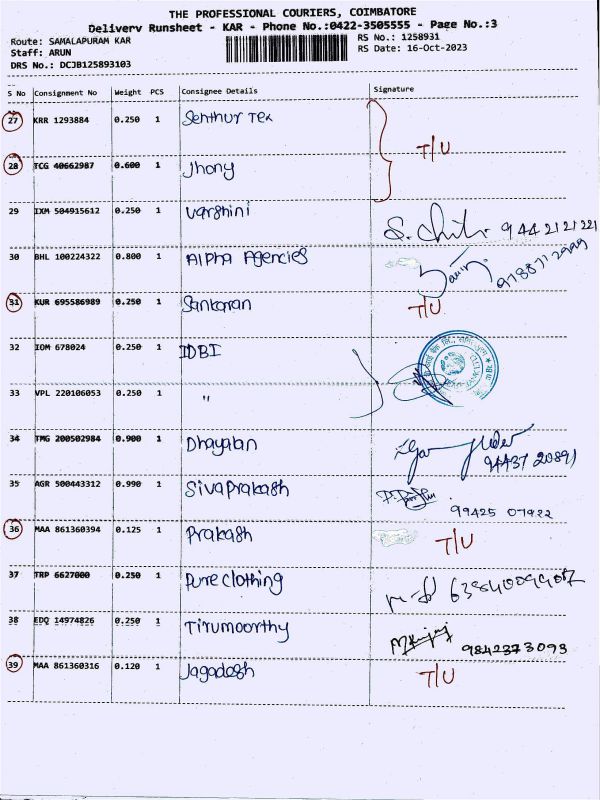 THE PROFESSIONAL COURIERS, COIMBATORE
Delivery Runsheet - KAR - Phone No.:0422-3505555 - Page No.:3
Route: SAMALAPURAM KAR RS No.: 1258931
Staff: ARUN RS Date: 16-Oct-2023
DRS No.: DCJB125893103
S No Consignment No Weight PCS Consignee Details Signature
27 KRR 1293884 0.250 1 Senthur Tex
T/U
28 TCG 40662987 0.600 1 Jhony
29 IXM 504915612 0.250 1 Varshini 9442121221
30 BHL 100224322 0.800 1 Alpha Agencies
31 KUR 695586989 0.250 1 Sankaran T/U
32 IOM 678024 0.250 1 IDBI
33 VPL 220106053 0.250 1 "
34 TMG 200502984 0.900 1 Dhayalan 94437 20891
35 AGR 500443312 0.990 1 Sivaprakash 99425 07922
36 MAA 861360394 0.125 1 Prakash T/U
37 TRP 6627000 0.250 1 Pure clothing
38 EDQ 14974826 0.250 1 Tirumoorthy 9842373093
39 MAA 861360316 0.120 1 Jagadesh T/U